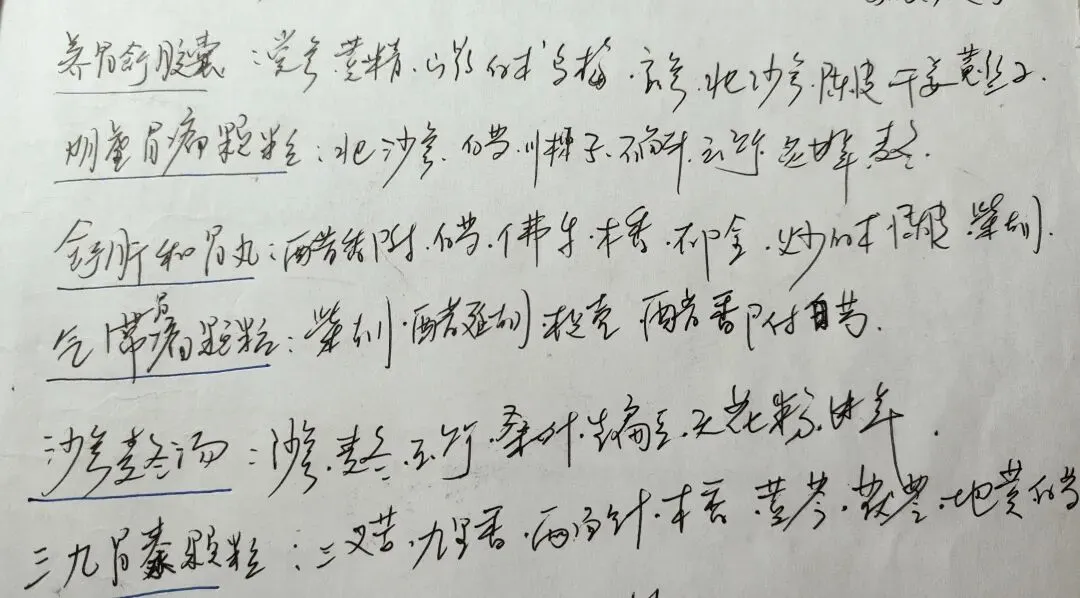 养胃舒胶囊：党参.黄精.山药.白术.乌梅.玄参.北沙参.陈皮.干姜.菟丝子.
阴虚胃痛颗粒：北沙参.白芍.川楝子.石斛.玉竹.甘草.麦冬.
舒肝和胃丸：醋香附.白芍.佛手.木香.郁金.炒白术.陈皮.柴胡.
气滞胃痛颗粒：柴胡.醋延胡.枳壳.醋香附.白芍.
沙参麦冬汤：沙参.麦冬.玉竹.桑叶.生扁豆.天花粉.甘草.
三九胃泰颗粒：三叉苦.九里香.两面针.木香.黄芩.茯苓.地黄.白芍